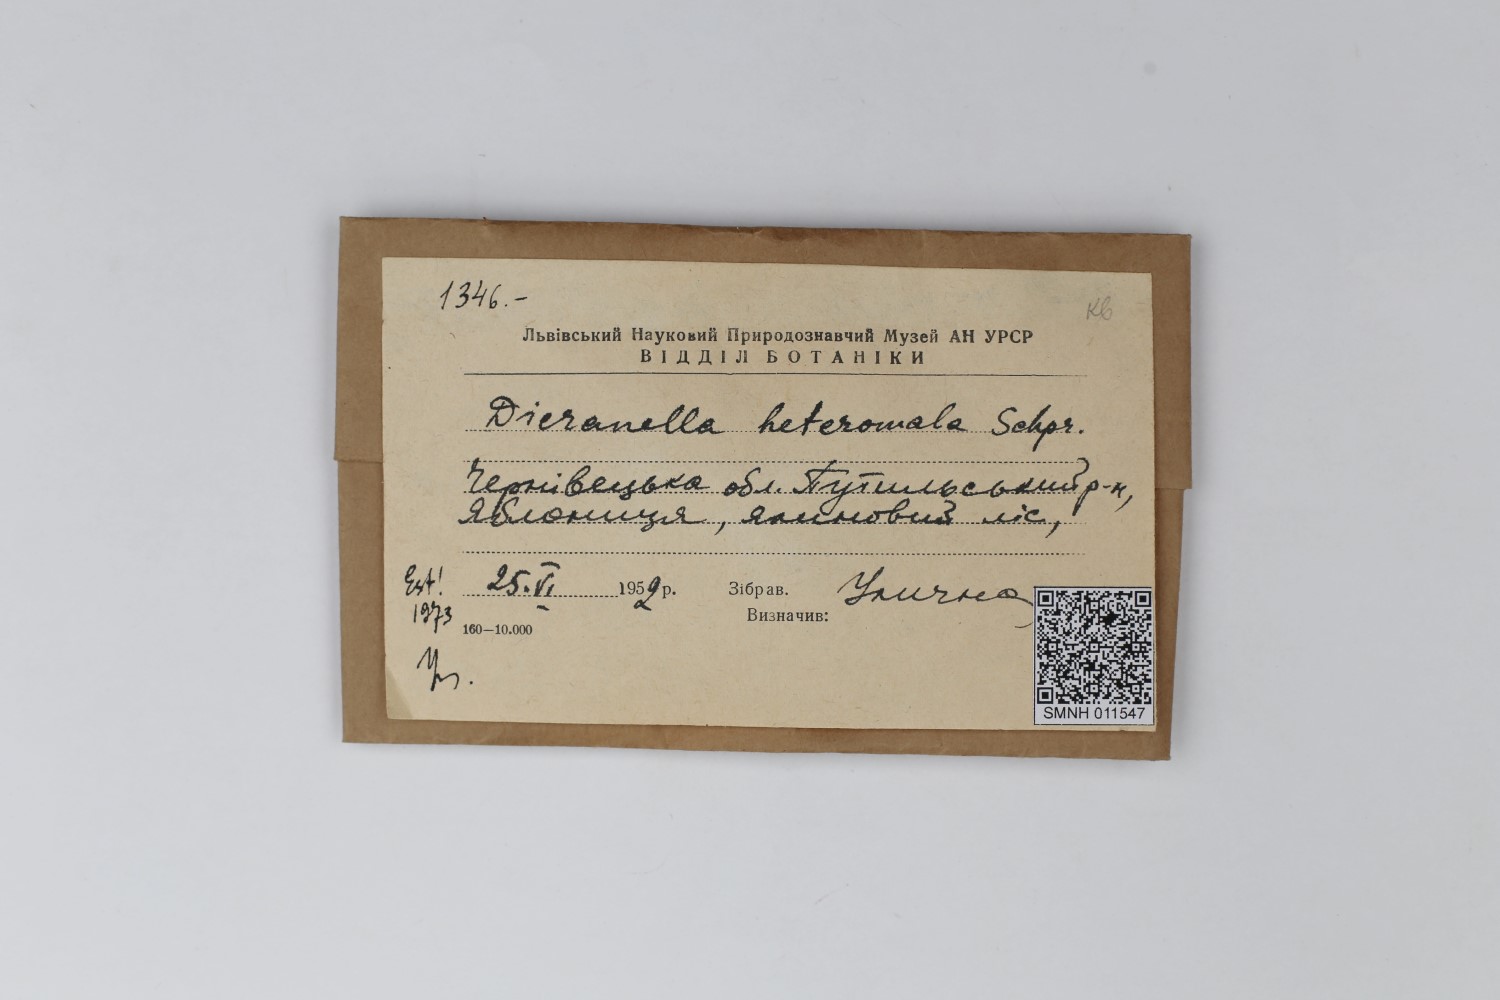 1346.-
Кв
Львівський Науковий Природознавчий Музей АН УРСР
ВІДДІЛ БОТАНІКИ
Dicranella heteromala Schpr.
Чернівецька обл. Путильський р-н,
Яблониця, ялиновий ліс,
25.VI 1952 р. Зібрав. Улична
Визначив:
1973
160—10.000
SMNH 011547